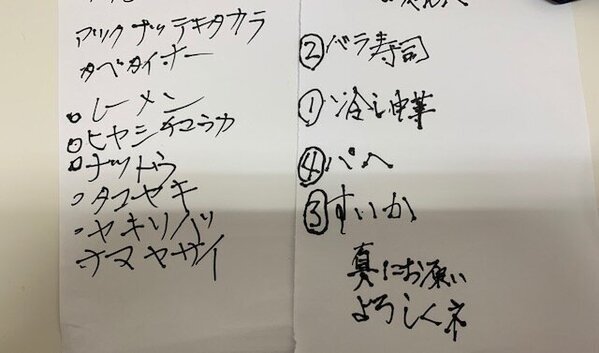 アツクナッテキタカラ
タベタイナー
レーメン
ヒヤシチュウカ
ナットウ
タコヤキ
ヤキソバ
ナマヤサイ
②バラ寿司
①冷し中華
④パン
③すいか
真にお願い
よろしくネ